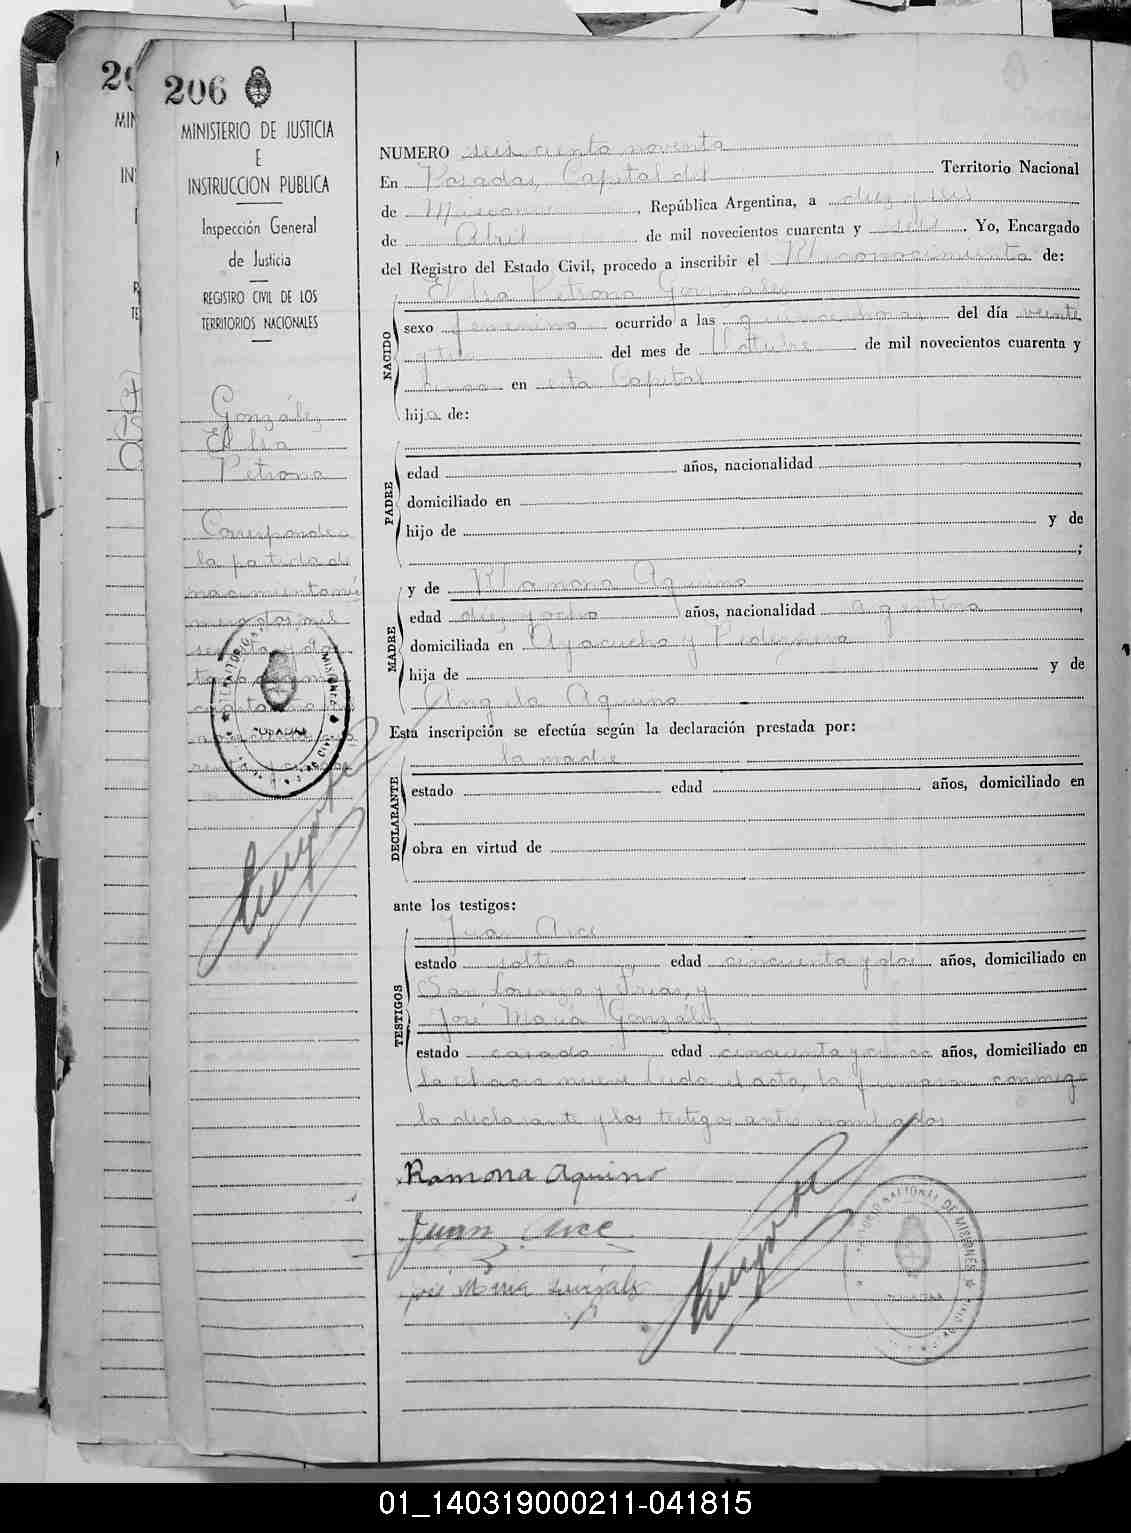 206
MINISTERIO DE JUSTICIA
E
INSTRUCCION PUBLICA
Inspección General
de Justicia
REGISTRO CIVIL DE LOS
TERRITORIOS NACIONALES
González
Petrona
Corresponde a
la partida de
nacimiento nú
mero dos mil
NUMERO seis ciento noventa
En Posadas, Capital del Territorio Nacional
de Misiones, República Argentina, a diez y seis
de Abril de mil novecientos cuarenta y seis. Yo, Encargado
del Registro del Estado Civil, procedo a inscribir el Reconocimiento de:
Petrona González
NACIDO
sexo femenino ocurrido a las quince horas del día veinte
y tres del mes de Octubre de mil novecientos cuarenta y
cinco en esta Capital
hija de:
PADRE
edad años, nacionalidad ,
domiciliado en
hijo de y de
;
MADRE
y de Ramona Aquino
edad diez y ocho años, nacionalidad argentina,
domiciliada en Ayacucho y
hija de y de
Angela Aquino
Esta inscripción se efectúa según la declaración prestada por:
la madre
DECLARANTE
estado edad años, domiciliado en
obra en virtud de
ante los testigos:
Juan Arce
TESTIGOS
estado soltero edad cincuenta y dos años, domiciliado en
San Lorenzo y Frias, y
José María González
estado casado edad cincuenta y cinco años, domiciliado en
la chacra nueve Leida el acta, la firmaron conmigo
la declarante y los testigos antes nombrados
Ramona Aquino
Juan Arce
José Maria Gonzalez
POSADAS
01_140319000211-041815